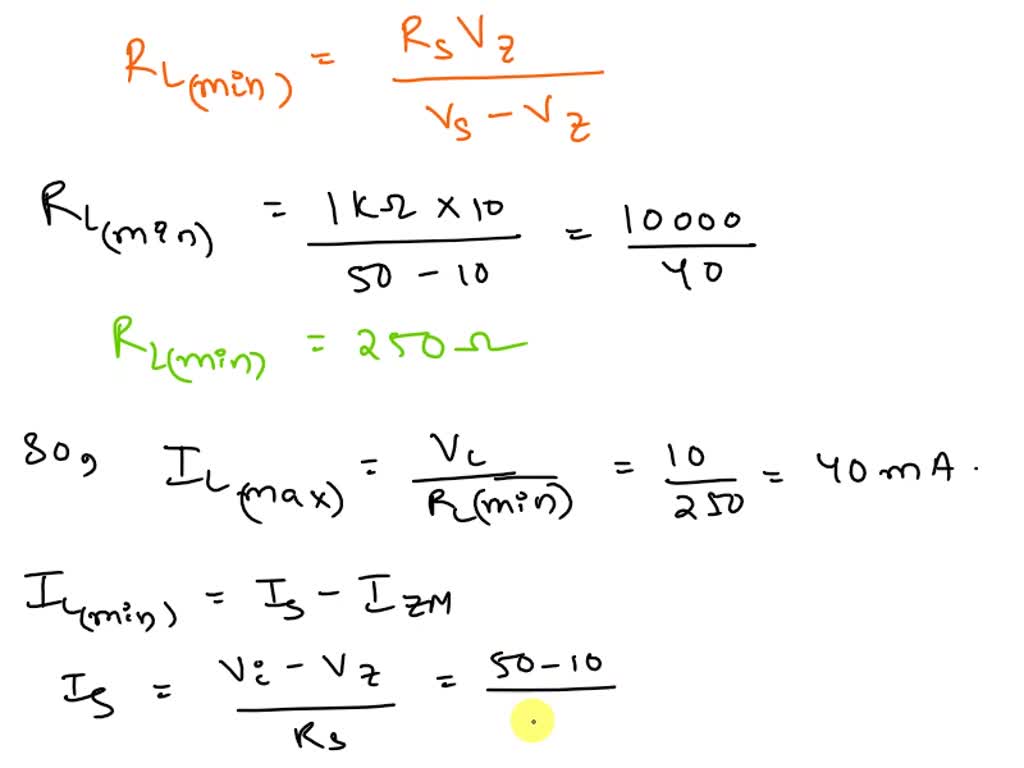 R_L(min) = R_S V_Z / V_S - V_Z
R_L(min) = 1kΩ × 10 / 50 - 10 = 10000 / 40
R_L(min) = 250 Ω
So, I_L(max) = V_L / R_L(min) = 10 / 250 = 40 mA.
I_L(min) = I_S - I_ZM
I_S = V_i - V_Z / R_S = 50 - 10 /